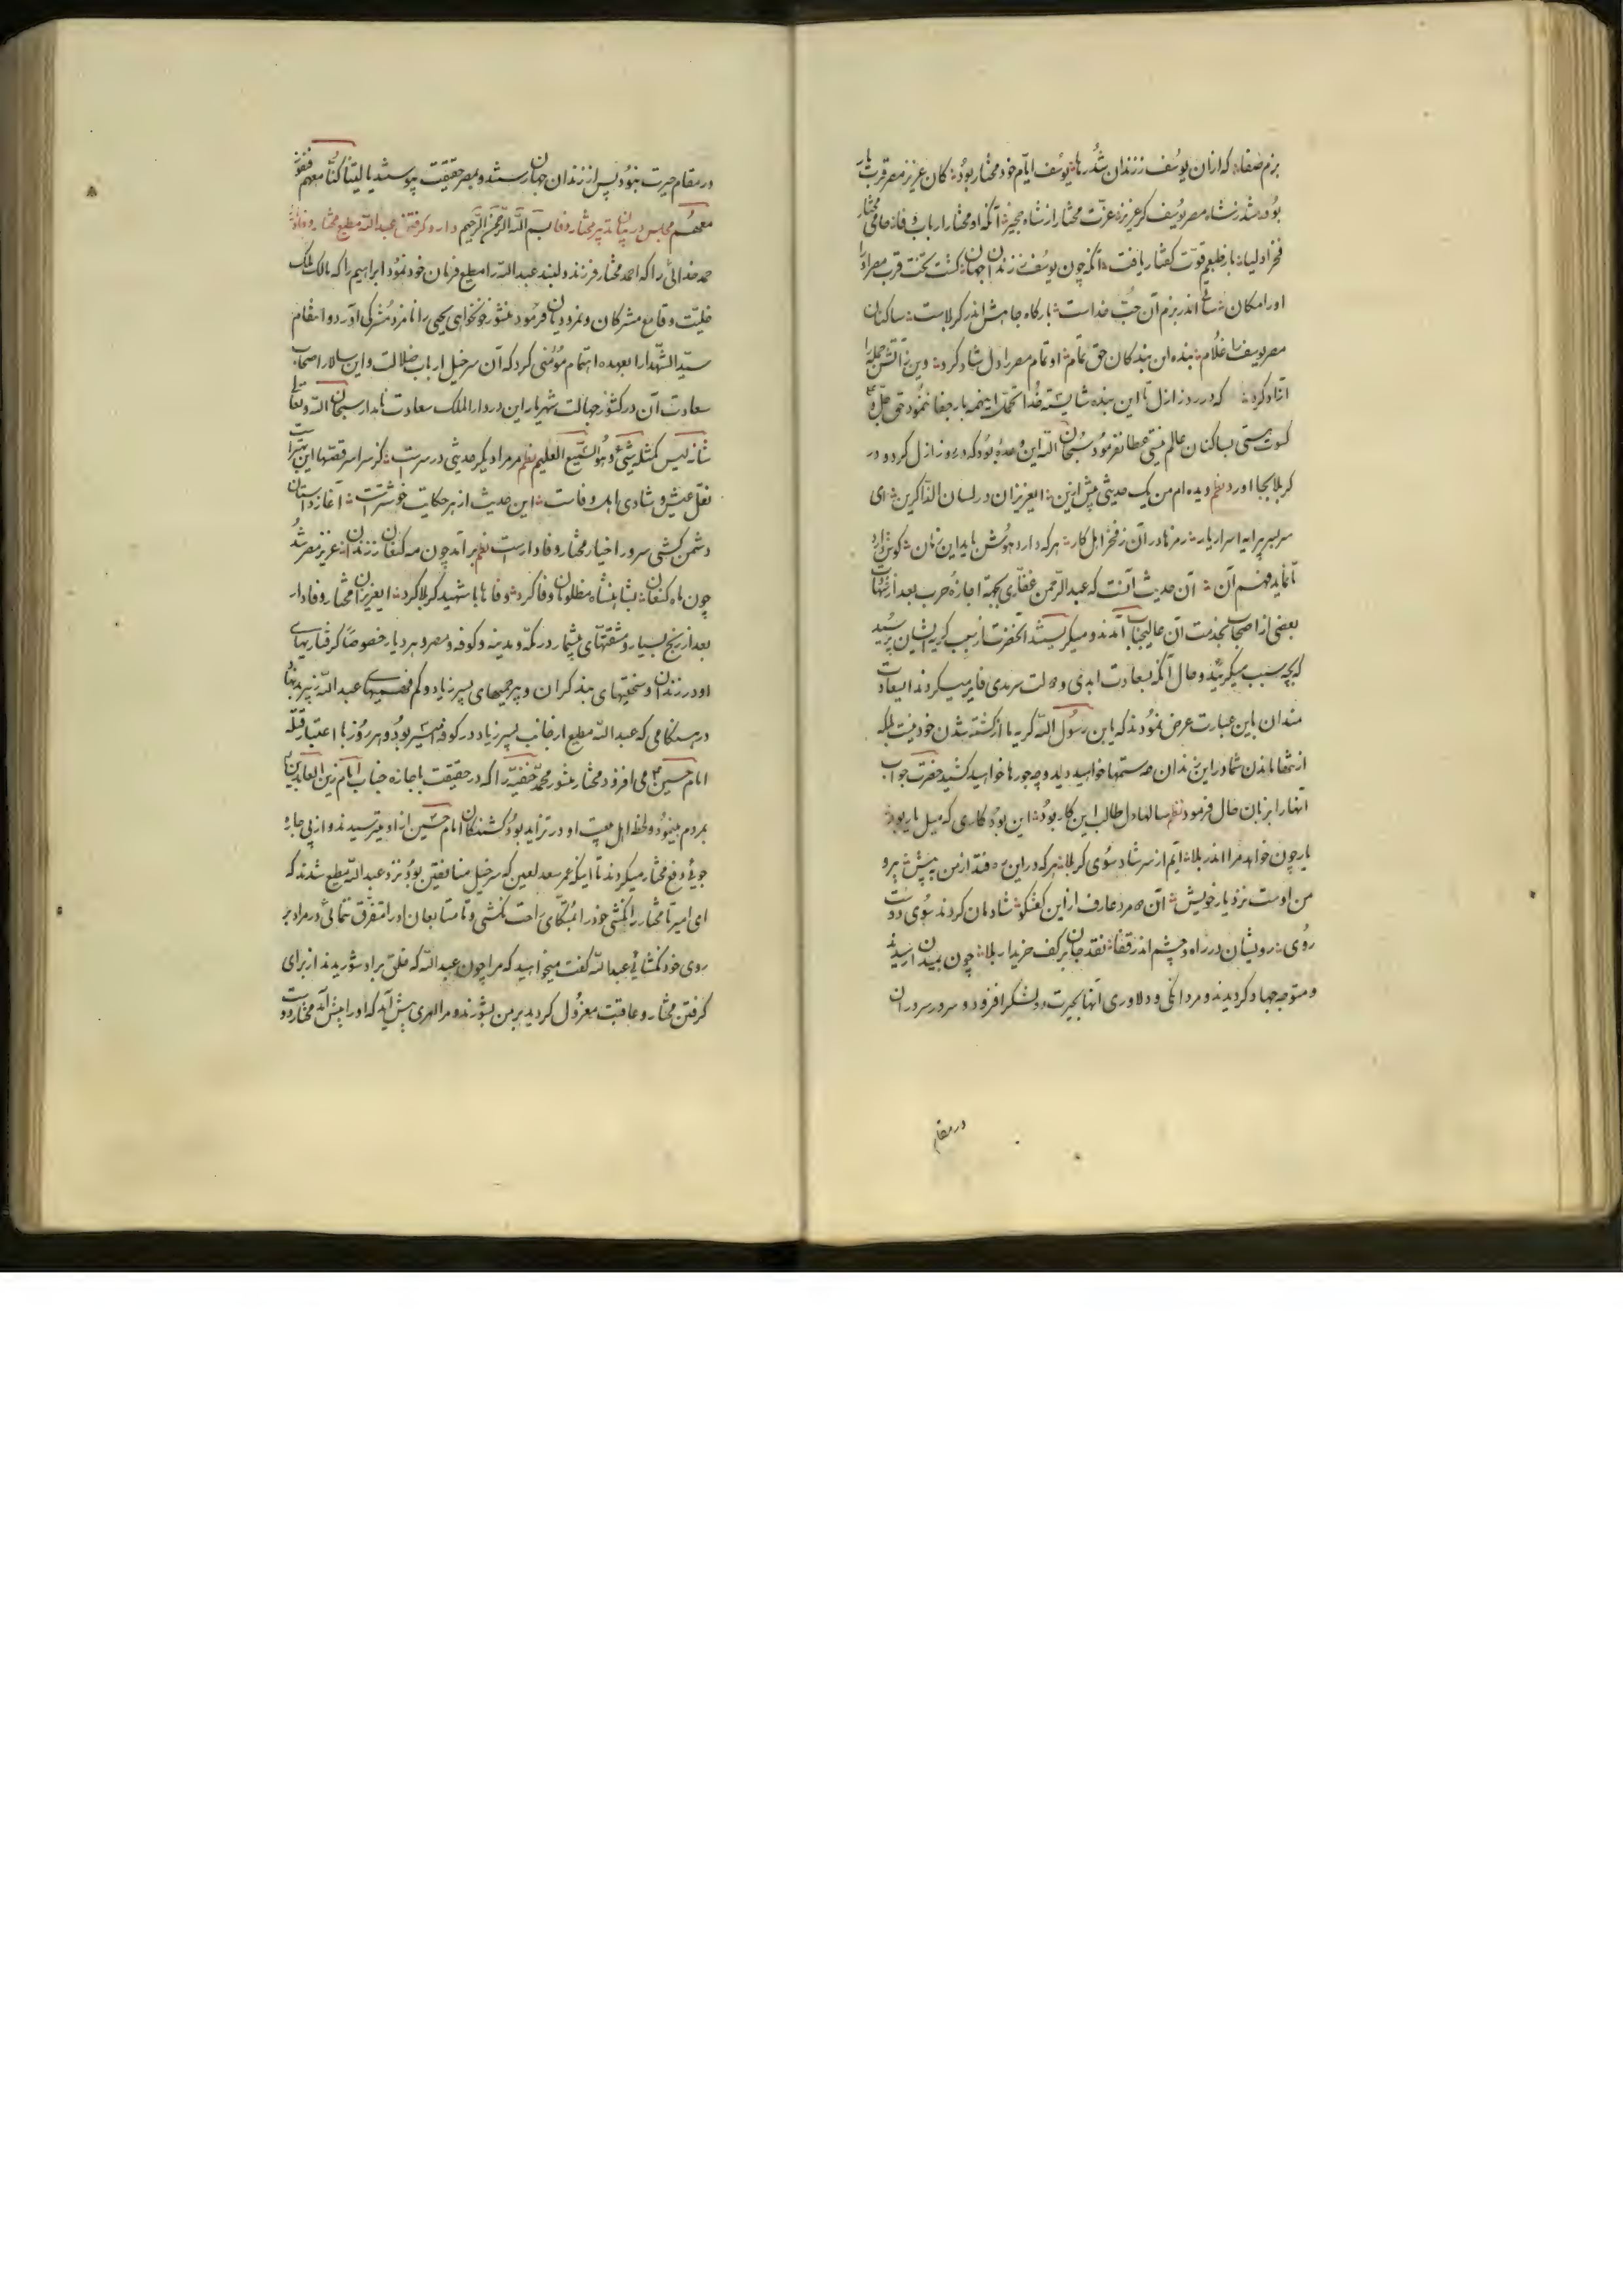 بزم صفا؛ که از آن یوسف ز زندان شد رها؛ یوسف ایام خود مختار بود؛ کان عزیز مصر قرب یار
بود؛ شد ز شاه مصر یوسف گر عزیز؛ عزت مختار از شاه مجیز؛ آنکه او مختار ارباب وفا؛ حامی مختار
فخر اولیا؛ باز طبعم قوت گفتار یافت؛ آنکه چون یوسف ز زندان جهان؛ گشت تخت قرب مصر او را
او را مکان؛ ساقی اندر بزم آن حب خداست؛ بارگاه جامش اندر کربلاست؛ ساکنان
مصر یوسف را غلام؛ بنده این بندگان حق تمام؛ او تمام مصر را دل شاد کرد؛ وین ز آتش جمله را
آزاد کرد؛ که در روز ازل تا این بنده شایسته خدا تحمل اینهمه بار جفا ننمود حق جل و علا
کسوت هستی بساکنان عالم نیستی عطا نفرمود سبحان الله این وعده بود که در روز ازل کرد و در
کربلا بجا آورد نظم دیده ام من یک حدیثی پیش ازین؛ ایعزیزان در لسان الذاکرین؛ ای
سربسر پیرایه اسرار یار؛ رمزها در آن ز فخر اهل کار؛ هرکه دارد هوش باید این زمان؛ گوش دارد
تا نماید فهم آن؛ آن حدیث آنست که عبدالرحمن غفاری بجهة اجازه حرب بعد از شهادت
بعضی از اصحاب بخدمت آن عالیجناب آمدند و میگریستند آنحضرت از سبب گریه ایشان پرسید
که بچه سبب میگریید و حال آنکه بسعادت ابدی و دولت سرمدی فایز میگردند آن سعادت
مندان باین عبارت عرض نمودند که یابن رسول الله گریه ما از کشته شدن خود نیست بلکه
از تنها ماندن شما در این زندان چه ستمها خواهید دید و چه جورها خواهید کشید حضرت جواب
آنها را بزبان حال فرمود نظم سالها دل طالب این کار بود؛ این بود کاری که میل یار بود؛
یار چون خواهد مرا اندر بلا؛ آیم از سر شاد سوی کربلا؛ هرکه در این ره فتد از من به پیش؛ پیرو
من اوست نزد یار خویش؛ آن دو مرد عارف از این گفتگو؛ شادمان کردند سوی دوست
روی؛ رویشان در راه و چشم اندر قفا؛ نقد جان بر کف خریدار بلا؛ چون بمیدان رسیدند
و متوجه جهاد گردیدند و مردانگی و دلاوری آنها بحیرت لشکر افزود و سرور سروران
در مقام
در مقام حیرت بنود پس از زندان جهان رستند و بمصر حقیقت پیوستند یا لیتنا کنا معهم فنفوز
معهم مجلس در بیان تدبیر مختار وفا بسم الله الرحمن الرحیم دار و گرفتن عبدالله مطیع مختار وفادار را
حمد خدائی را که احمد مختار فرزند دلبند عبدالله را مطیع فرمان خود نمود ابراهیم را که مالک ملک
خلیت و قامع مشرکان و نمرودیان فرمود منشور خونخواهی یحیی را نامزد مشرکی آورد و انتقام
سید الشهدا را بعهده اهتمام مؤمنی کرد که آن سرخیل ارباب ضلالت و این سالار اصحاب
سعادت آن در کشور جهالت شهریار این در دار الملک سعادت نامدار سبحان الله و تعالی
شانه لیس کمثله شیء و هو السمیع العلیم نظم مر مرا دیگر حدیثی در سر است؛ کز سراسر قصتها این بهتر است
نقل عیش و شادی اهل وفاست؛ این حدیث از هر حکایت خوشتر است؛ آغاز داستان
دشمن کشی سرور اخیار مختار وفادار است نظم برآمد چون مه کنعان ز زندان؛ عزیز مصر شد
چون ماه کنعان؛ بشاهنشاه مظلومان وفا کرد؛ وفاها با شهید کربلا کرد؛ ایعزیزان مختار وفادار
بعد از رنج بسیار و مشقتهای بیشمار در مکه و مدینه و کوفه و مصر و هر دیار خصوصاً گرفتاریهای
او در زندان و سختیهای بند گران و بیرحمیهای پسر زیاد و کم فهمیهای عبدالله زبیر بدنهاد
در هنگامی که عبدالله مطیع از جانب پسر زیاد در کوفه امیر بود و هر روز با اعتبار قتله
امام حسین ع می افزود مختار منشور محمد حنفیه را که در حقیقت باجازه جناب امام زین العابدین
بمردم مینمود و لحظه اهل بیعت او در تزاید بود کشندگان امام حسین از او میترسیدند و از پی چاره
جوئی دفع مختار میکردند تا اینکه عمر سعد لعین که سرخیل منافقین بود نزد عبدالله مطیع شدند که
ای امیر تا مختار را نکشی خود را متکای راحت نکشی و تا متابعان او را متفرق ننمائی در مراد بر
روی خود نگشائی عبدالله گفت میخواهید که مرا چون عبدالله که خلق بر او شوریدند از برای
گرفتن مختار و عاقبت معزول گردید بر من بشورند و مرا امری پیش آید که او را پیش آمد مختار دوست